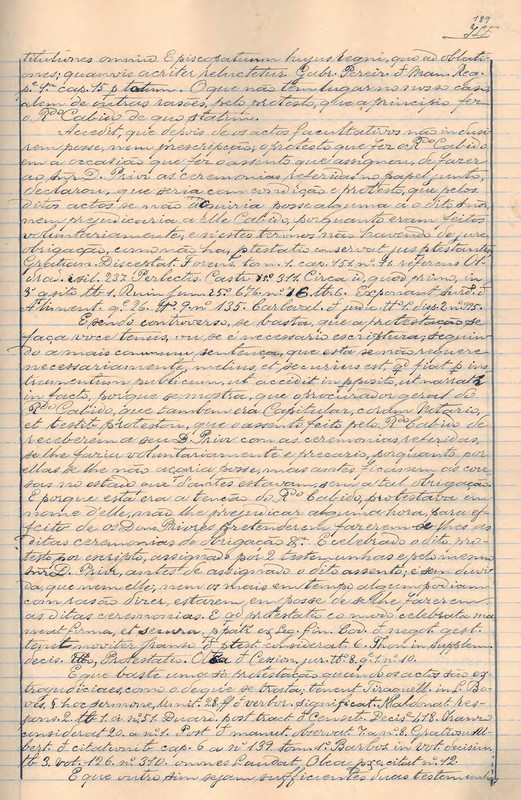 189
titutiones omnium Episcopatuum hujus regni, quo ad oblati-
ones; quamvis acriter reluctetur Gabr. Pereir. d Man. Reg.
p. 1ª cap. 15 p totum. O que não tem lugar no nosso caso
alem de outras rasões, pelo protesto, que a principio fez
o Rdo Cabido de quo statim.
Accedit, que depois de os actos facultativos não induzi-
rem posse, nem prescripção, o protesto que fez o Rdo Cabido
em a occasião que fez o assento que assignou, de fazer
ao Snr D. Prior as ceremonias referidas no papel junto,
declarou, que seria com condição e protesto, que pelos
ditos actos se não adquiria posse alguma a o dito Snor
nem prejudicaria a elle Cabido, porquanto eram feitos
voluntariamente, e nestes termos não havendo de jure
obrigação, como não ha, protestatio conservat jus protestantis,
Gratian. Disceptat. Forens. tom. 1. cap. 151 nº 16
237 nº 311. Circa id, quod primo, in
676. nº 16
g. 26. nº 135. Carleval. d judic. disp. 2. nº 995.
E sendo controverso, se basta, que a protestação se
faça voce tenus, ou se é necessario escriptura, seguin-
do a mais commum sentença, que esta se não requere
necessariamente, melius, et securius est, q̃ fiat p ins-
trumentum publicum, ut accidit in pposito, ut narratr
in facto, porque se mostra, que o procurador geral do
Rdo Cabido, que tambem era Capitular, coram Notario,
et testib protestou, que o assento feito pelo Rdo Cabido de
receberem a seu D. Prior com as ceremonias referidas,
se lhe faria voluntariamente e precario, porquanto por
ellas se lhe não daria posse, mas antes ficassem as cou-
sas no estado que d'antes estavam, sem a tal obrigação.
E porque esta era a tenção do Rdo Cabido, protestava em
nome d'elle, não lhe prejudicar alguma hora, para ef-
feito de os Dons Priores pretenderem fazerem-se-lhes as
ditas ceremonias de obrigação &ª. E celebrado o dito pro-
testo por escripto, assignado por 2 testemunhas e pelo mesmo
Snr D. Prior, antes de assignado o dito assento; é sem duvi-
da, que nem elle, nem os mais em tempo algum podiam
com rasão dizer, estarem em posse de se lhe fazerem
as ditas ceremonias. E q̃ protestatio eo modo celebrata ma-
neat firma, et secura, p. text. ex Leg. fin. Cod. d negot. gest.
tenet noviter considerat. 6. Thor. in supplem.
decis. Protestatio. Olea d Cession. jur. tt. 8. q. 1. nº 10.
E que baste uma só protestação quando os actos são ex-
trajudiciaes, como o de que se trata; tenent Tiraquell. in L. Bo-
ves. § hoc sermone, limit. 28, ff d verbor. significat. Maldonat. res-
pons. 2. tt. 1. a nº 51. Duari. post tract. d Censib. Decis. 418.
considerat. 20. a nº 1. Post. d manut. observat. 7. a nº 8. Gratian
d citationib cap. 6 a nº 139 tom. 1º Barbos. in vot. decisiv.
tt. 3. vot. 126. nº 310. omnes laudat. Olea citat. nº 12.
E que outro sim, sejam sufficientes duas testemunhas